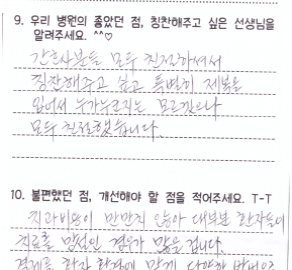 9. 우리 병원의 좋았던 점, 칭찬해주고 싶은 선생님을
알려주세요. ^^♡
간호사분들 모두 친절하셔서
칭찬해주고 싶고 특별히 제복을
입어서 누가누군지는 모르겠으나
모두 친절했습니다.
10. 불편했던 점, 개선해야 할 점을 적어주세요. T-T
치과비용이 만만치 않아 대부분 환자들이
치료를 망설인 경우가 많을 겁니다.
결제를 환자 환경에 맞게 다양한 방법으로